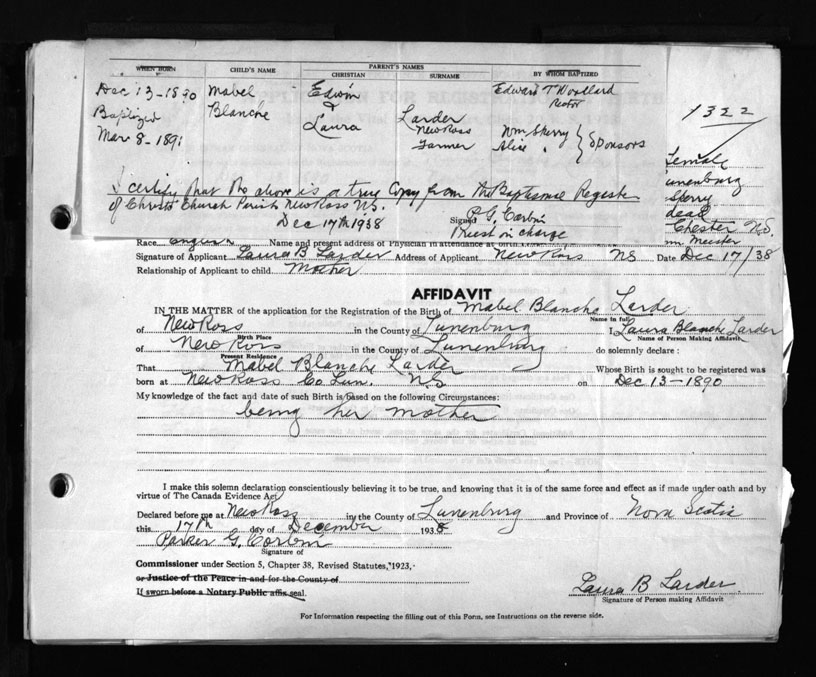 WHEN BORN CHILD'S NAME PARENT'S NAMES CHRISTIAN SURNAME BY WHOM BAPTIZED
Dec 13-1890 Mabel Edwin Edward T Woollard
Baptized Blanche & Larder Rector
Mar 8-1891 Laura New Ross Wm. Skerry } Sponsors
Farmer Alice "
1322
I certify that the above is a true Copy from the Baptismal Register
of Christ Church Parish New Ross NS.
Dec 17th 1938 Signed P. G. Corbin
Priest in charge
Female
unenburg
Skerry
dead
Chester N.S.
Meister
Race Name and present address of Physician in attendance at birth
Signature of Applicant Laura B Larder Address of Applicant New Ross NS Date Dec 17/38
Relationship of Applicant to child Mother
AFFIDAVIT
IN THE MATTER of the application for the Registration of the Birth of Mabel Blanche Larder
Name in full
of New Ross in the County of Lunenburg I, Laura Blanche Larder
Birth Place Name of Person Making Affidavit
of New Ross in the County of Lunenburg do solemnly declare :
Present Residence
That Mabel Blanche Larder Whose Birth is sought to be registered was
born at New Ross Co Lun. N.S on Dec 13-1890
My knowledge of the fact and date of such Birth is based on the following Circumstances:
being her mother
I make this solemn declaration conscientiously believing it to be true, and knowing that it is of the same force and effect as if made under oath and by
virtue of The Canada Evidence Act
Declared before me at New Ross in the County of Lunenburg and Province of Nova Scotia
this 17th day of December 1938
Parker G. Corbin
Signature of
Commissioner under Section 5, Chapter 38, Revised Statutes, 1923,
or Justice of the Peace in and for the County of
If sworn before a Notary Public affix seal.
Laura B Larder
Signature of Person making Affidavit
For Information respecting the filling out of this Form, see Instructions on the reverse side.